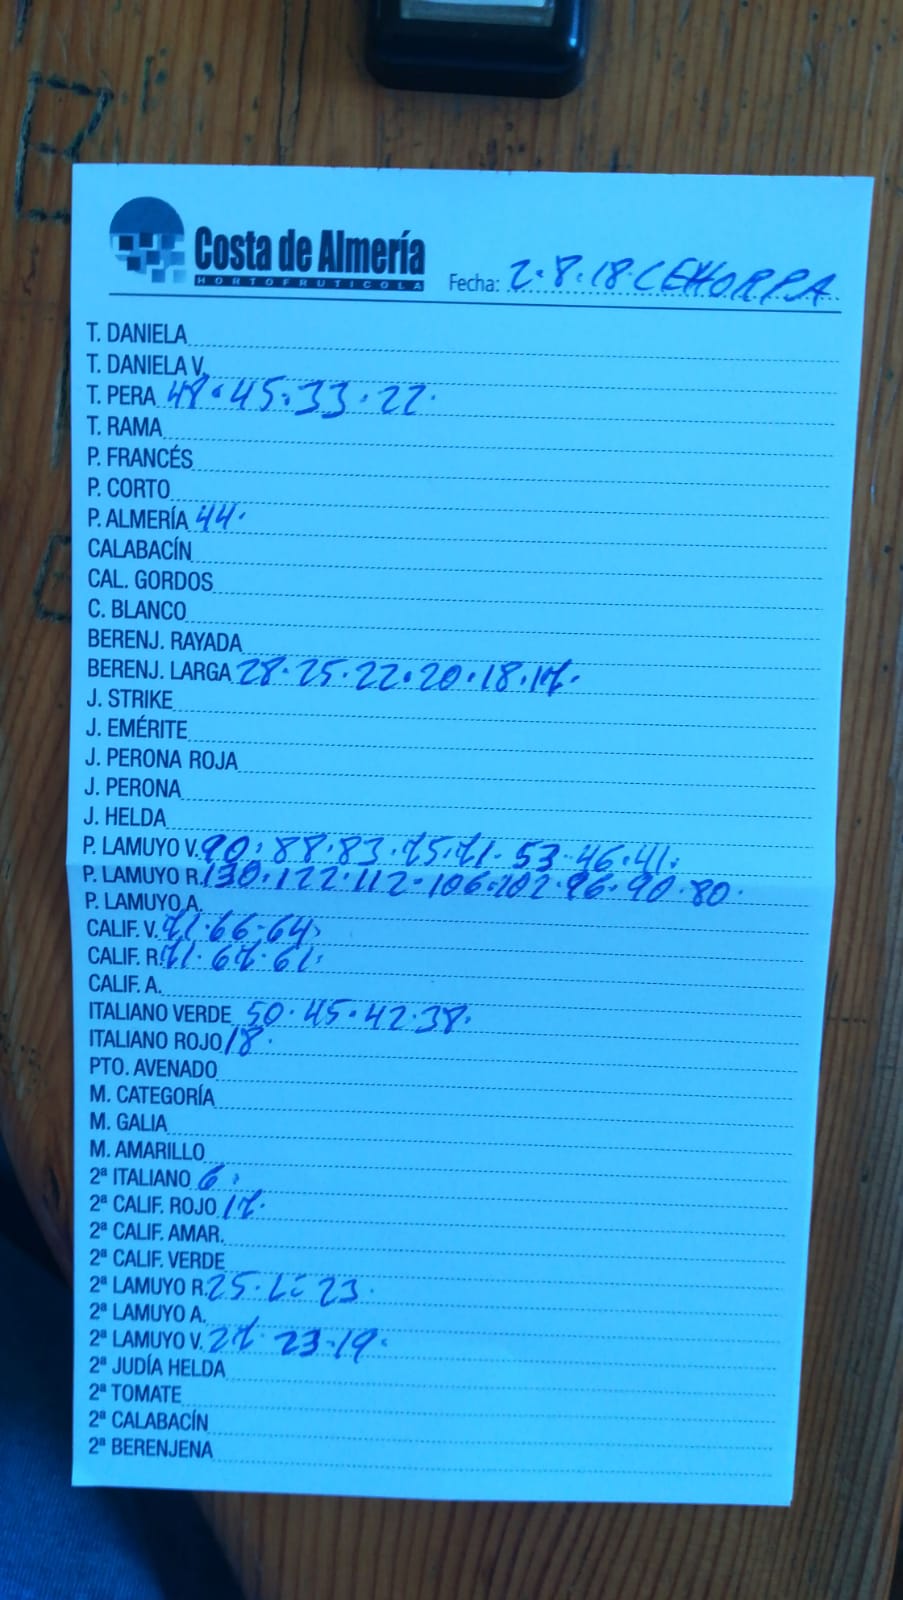 Costa de Almería
HORTOFRUTICOLA
Fecha: 2.8.18 CEHORPA
T. DANIELA
T. DANIELA V.
T. PERA 48.45.33.22.
T. RAMA
P. FRANCÉS
P. CORTO
P. ALMERÍA 44.
CALABACÍN
CAL. GORDOS
C. BLANCO
BERENJ. RAYADA
BERENJ. LARGA 28.25.22.20.18.17.
J. STRIKE
J. EMÉRITE
J. PERONA ROJA
J. PERONA
J. HELDA
P. LAMUYO V. 90.88.83.75.71.53.46.41.
P. LAMUYO R. 130.122.112.106.102.96.90.80.
P. LAMUYO A.
CALIF. V. 71.66.64.
CALIF. R. 71.67.61.
CALIF. A.
ITALIANO VERDE 50.45.42.38.
ITALIANO ROJO 18.
PTO. AVENADO
M. CATEGORÍA
M. GALIA
M. AMARILLO
2ª ITALIANO 6.
2ª CALIF. ROJO 17.
2ª CALIF. AMAR.
2ª CALIF. VERDE
2ª LAMUYO R. 25. 23.
2ª LAMUYO A.
2ª LAMUYO V. 27 23.19.
2ª JUDÍA HELDA
2ª TOMATE
2ª CALABACÍN
2ª BERENJENA